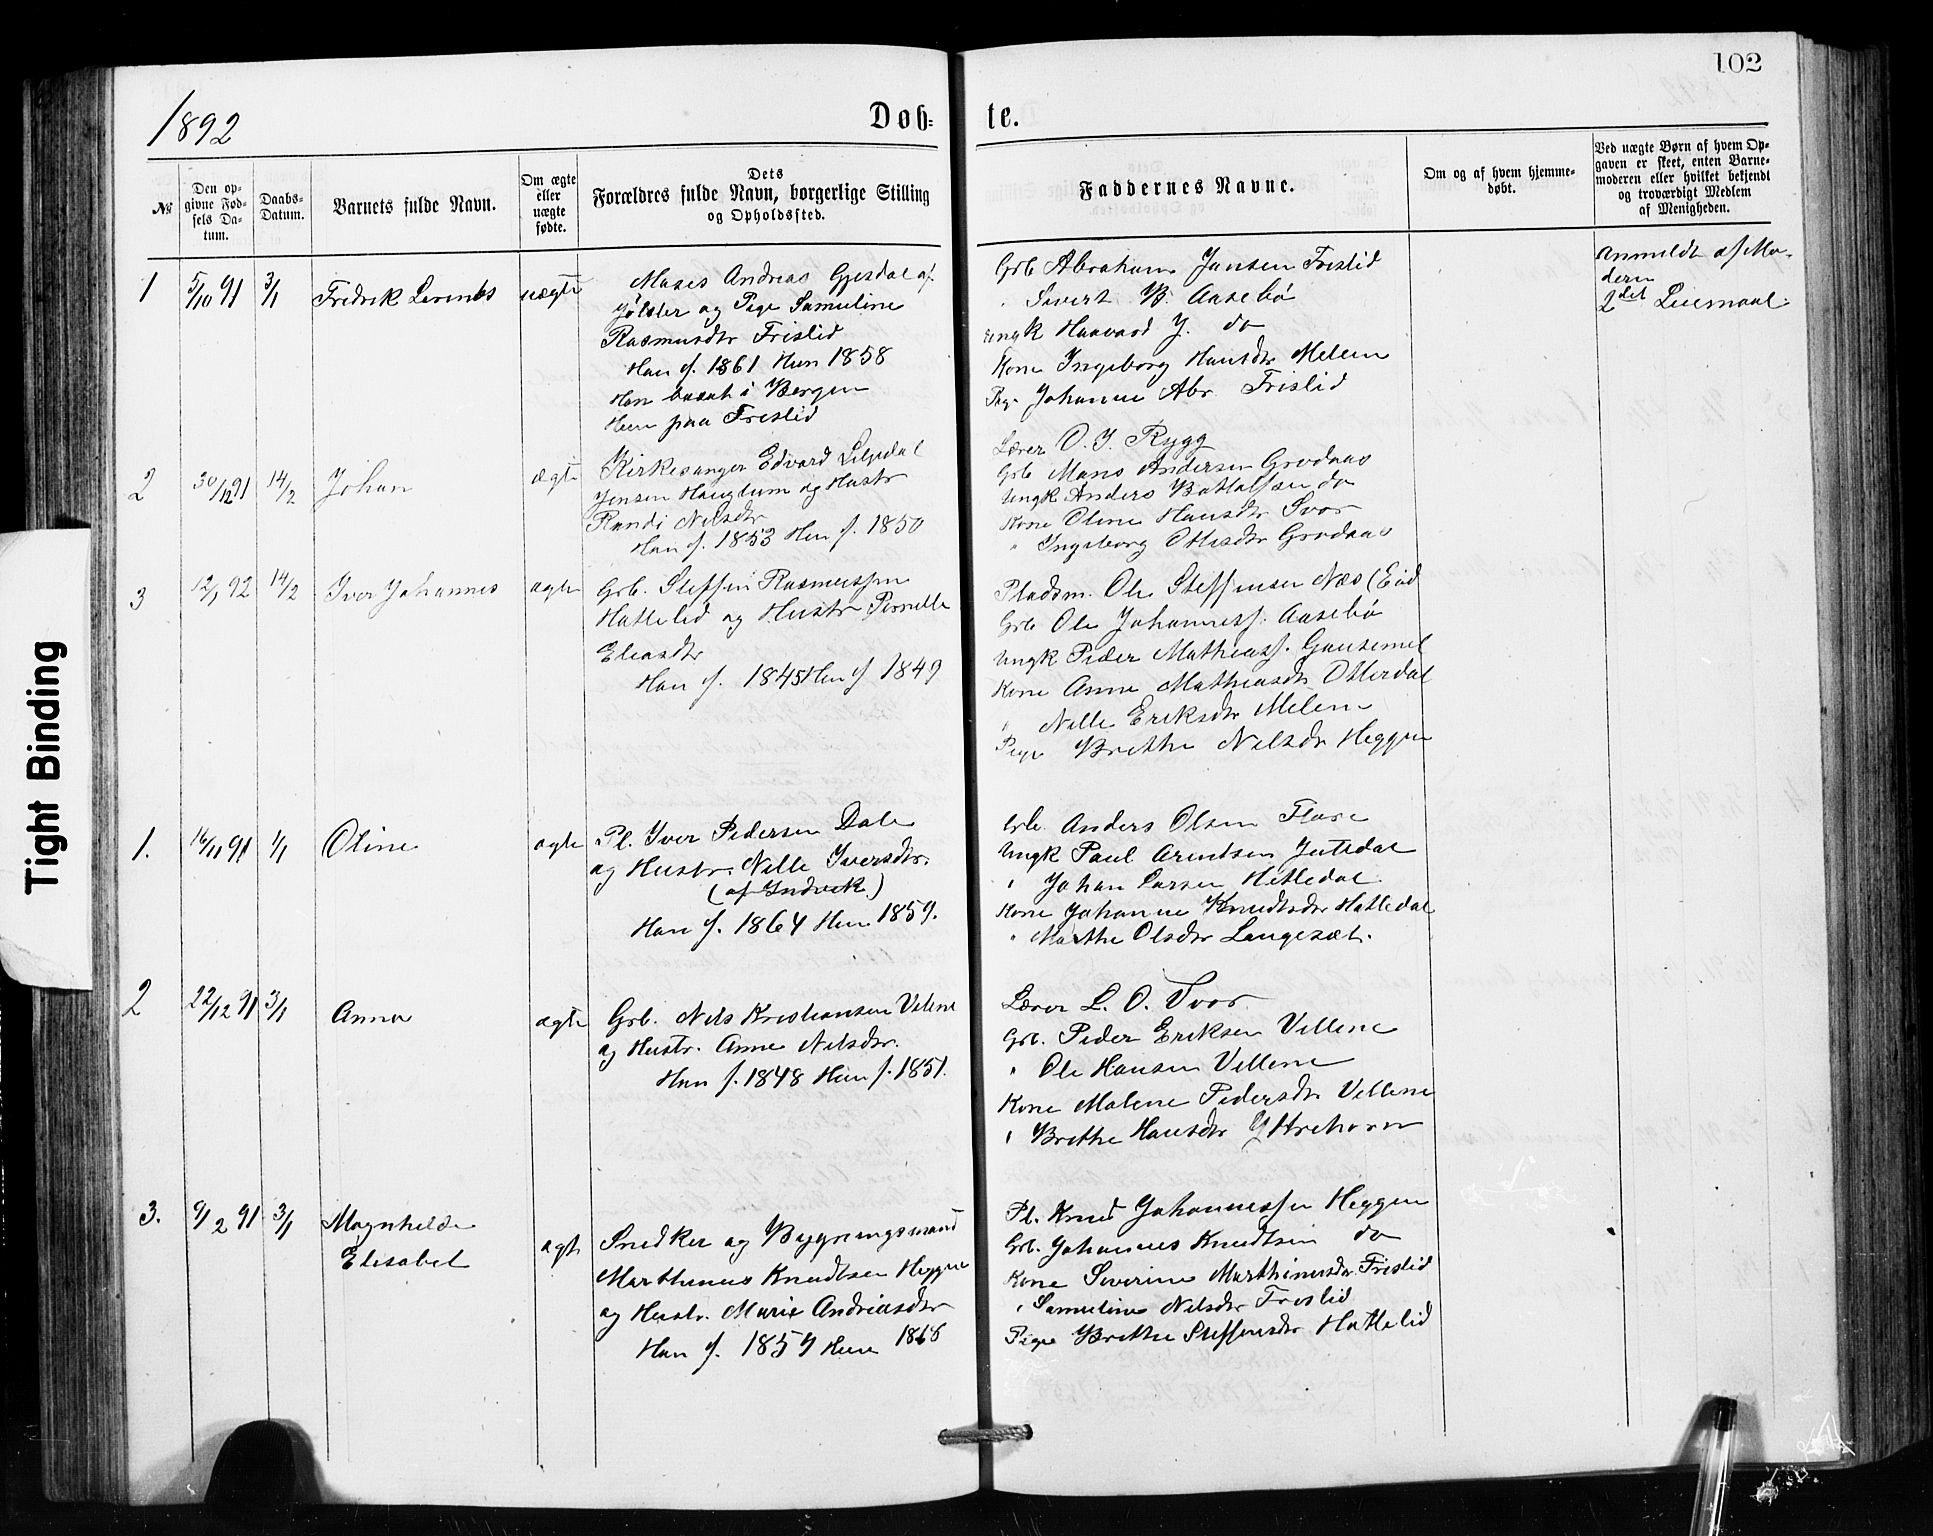 102
1892
Døb-
te.
№
Den op-
givne Fød-
sels Da-
tum.
Daabs-
Datum.
Barnets fulde Navn.
Om ægte
eller
uægte
fødte.
Dets
Forældres fulde Navn, borgerlige Stilling
og Opholdssted.
Faddernes Navne.
Om og af hvem hjemme-
døbt.
Ved uægte Børn af hvem Op-
gaven er skeet, enten Barne-
moderen eller hvilket bekjendt
og troværdigt Medlem
af Menigheden.
1 5/10 91 3/1 Fredrik Lorents uægte
Moses Andreas Gjesdal af
Jølster og Pige Samuline
Rasmusdtr Frislid
Han f. 1861 Hun 1858
Han bosat i Bergen
Hun paa Frislid
Grb Abraham Jansen Frislid
" Sivert B. Aasebø
Ungk Haavard J. do
Kone Ingeborg Hansdtr Melem
Pige Johanne Abr. Frislid
Anmeldt af Mo-
deren
2det Leiermaal.
2 30/12 91 14/2 Johan ægte
Kirkesanger Edvard Liljedal
Jensen Haugum og Hustr
Randi Nilsdtr
Han f. 1853 Hun f. 1850
Lærer O. J. Rygg
Grb Mons Andersen Grodaas
Ungk Anders Bottolfsen do
Kone Oline Hansdtr Svor
" Ingeborg Ottesdtr Grodaas
3 12/1 92 14/2 Iver Johannes ægte
Grb. Steffen Rasmussen
Hattelid og Hustr Pernille
Eliasdtr
Han f. 1845 Hun f 1849
Pladsm. Ole Steffensen Næs (Eid
Grb Ole Johannesf. Aasebø
Ungk Peder Mathiasf. Gausemel
Kone Anne Mathiasdtr Otterdal
" Nille Eriksdtr Melem
Pige Brithe Nilsdtr Heggen
1. 14/11 91 1/1 Oline ægte
Pl. Iver Pedersen Dale
og Hustr. Nille Iversdtr.
(af Indvik)
Han f. 1864 Hun 1859.
Grb Anders Olsen Flore
Ungk Paul Arentsen Indredal
" Johan Larsen Hilledal.
Kone Johanne Knudtsdtr Hattedal
" Marthe Olsdtr Langesæt.
2 22/12 91 3/1 Anna ægte
Grb. Nils Kristiansen Villene
og Hustr. Anne Nilsdtr.
Han f. 1848 Hun f. 1851.
Lærer L. O. Svor
Grb. Peder Eriksen Villene
" Ole Hansen Villene
Kone Malene Pedersdtr Villene
" Brithe Hansdtr Ytrehorn
3. 9/12 91 3/1 Magnhilde
Elisabet ægte
Snedker og Bygningsmand
Marthinus Knudtsen Heggen
og Hustr. Marie Andreasdtr
Han f. 1857 Hun 1866
Pl. Knud Johannessen Heggen
Grb. Johannes Knudtsen do
Kone Severine Marthinusdtr Frislid
" Samuline Nilsdtr Frislid
Pige Brithe Steffensdtr Hattelid
Tight Binding